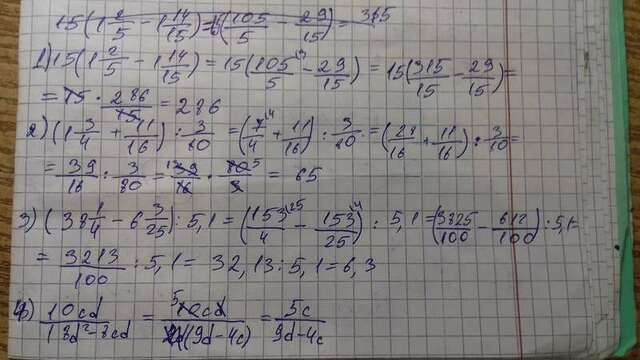 15(1 2/5 - 1 14/15) = 15(105/5 - 29/15) = 315
1) 15(1 2/5 - 1 14/15) = 15(105/5 - 29/15) = 15(315/15 - 29/15) =
= 15 · 286/15 = 286
2) (1 3/4 + 11/16) : 3/80 = (7/4 + 11/16) : 3/80 = (28/16 + 11/16) : 3/80 =
= 39/16 : 3/80 = 39/16 · 80/3 = 65
3) (38 1/4 - 6 3/25) : 5,1 = (153/4 - 153/25) : 5,1 = (3825/100 - 612/100) : 5,1 =
= 3213/100 : 5,1 = 32,13 : 5,1 = 6,3
10cd/(18d² - 8cd) = 10cd/(2d(9d-4c)) = 5c/(9d-4c)